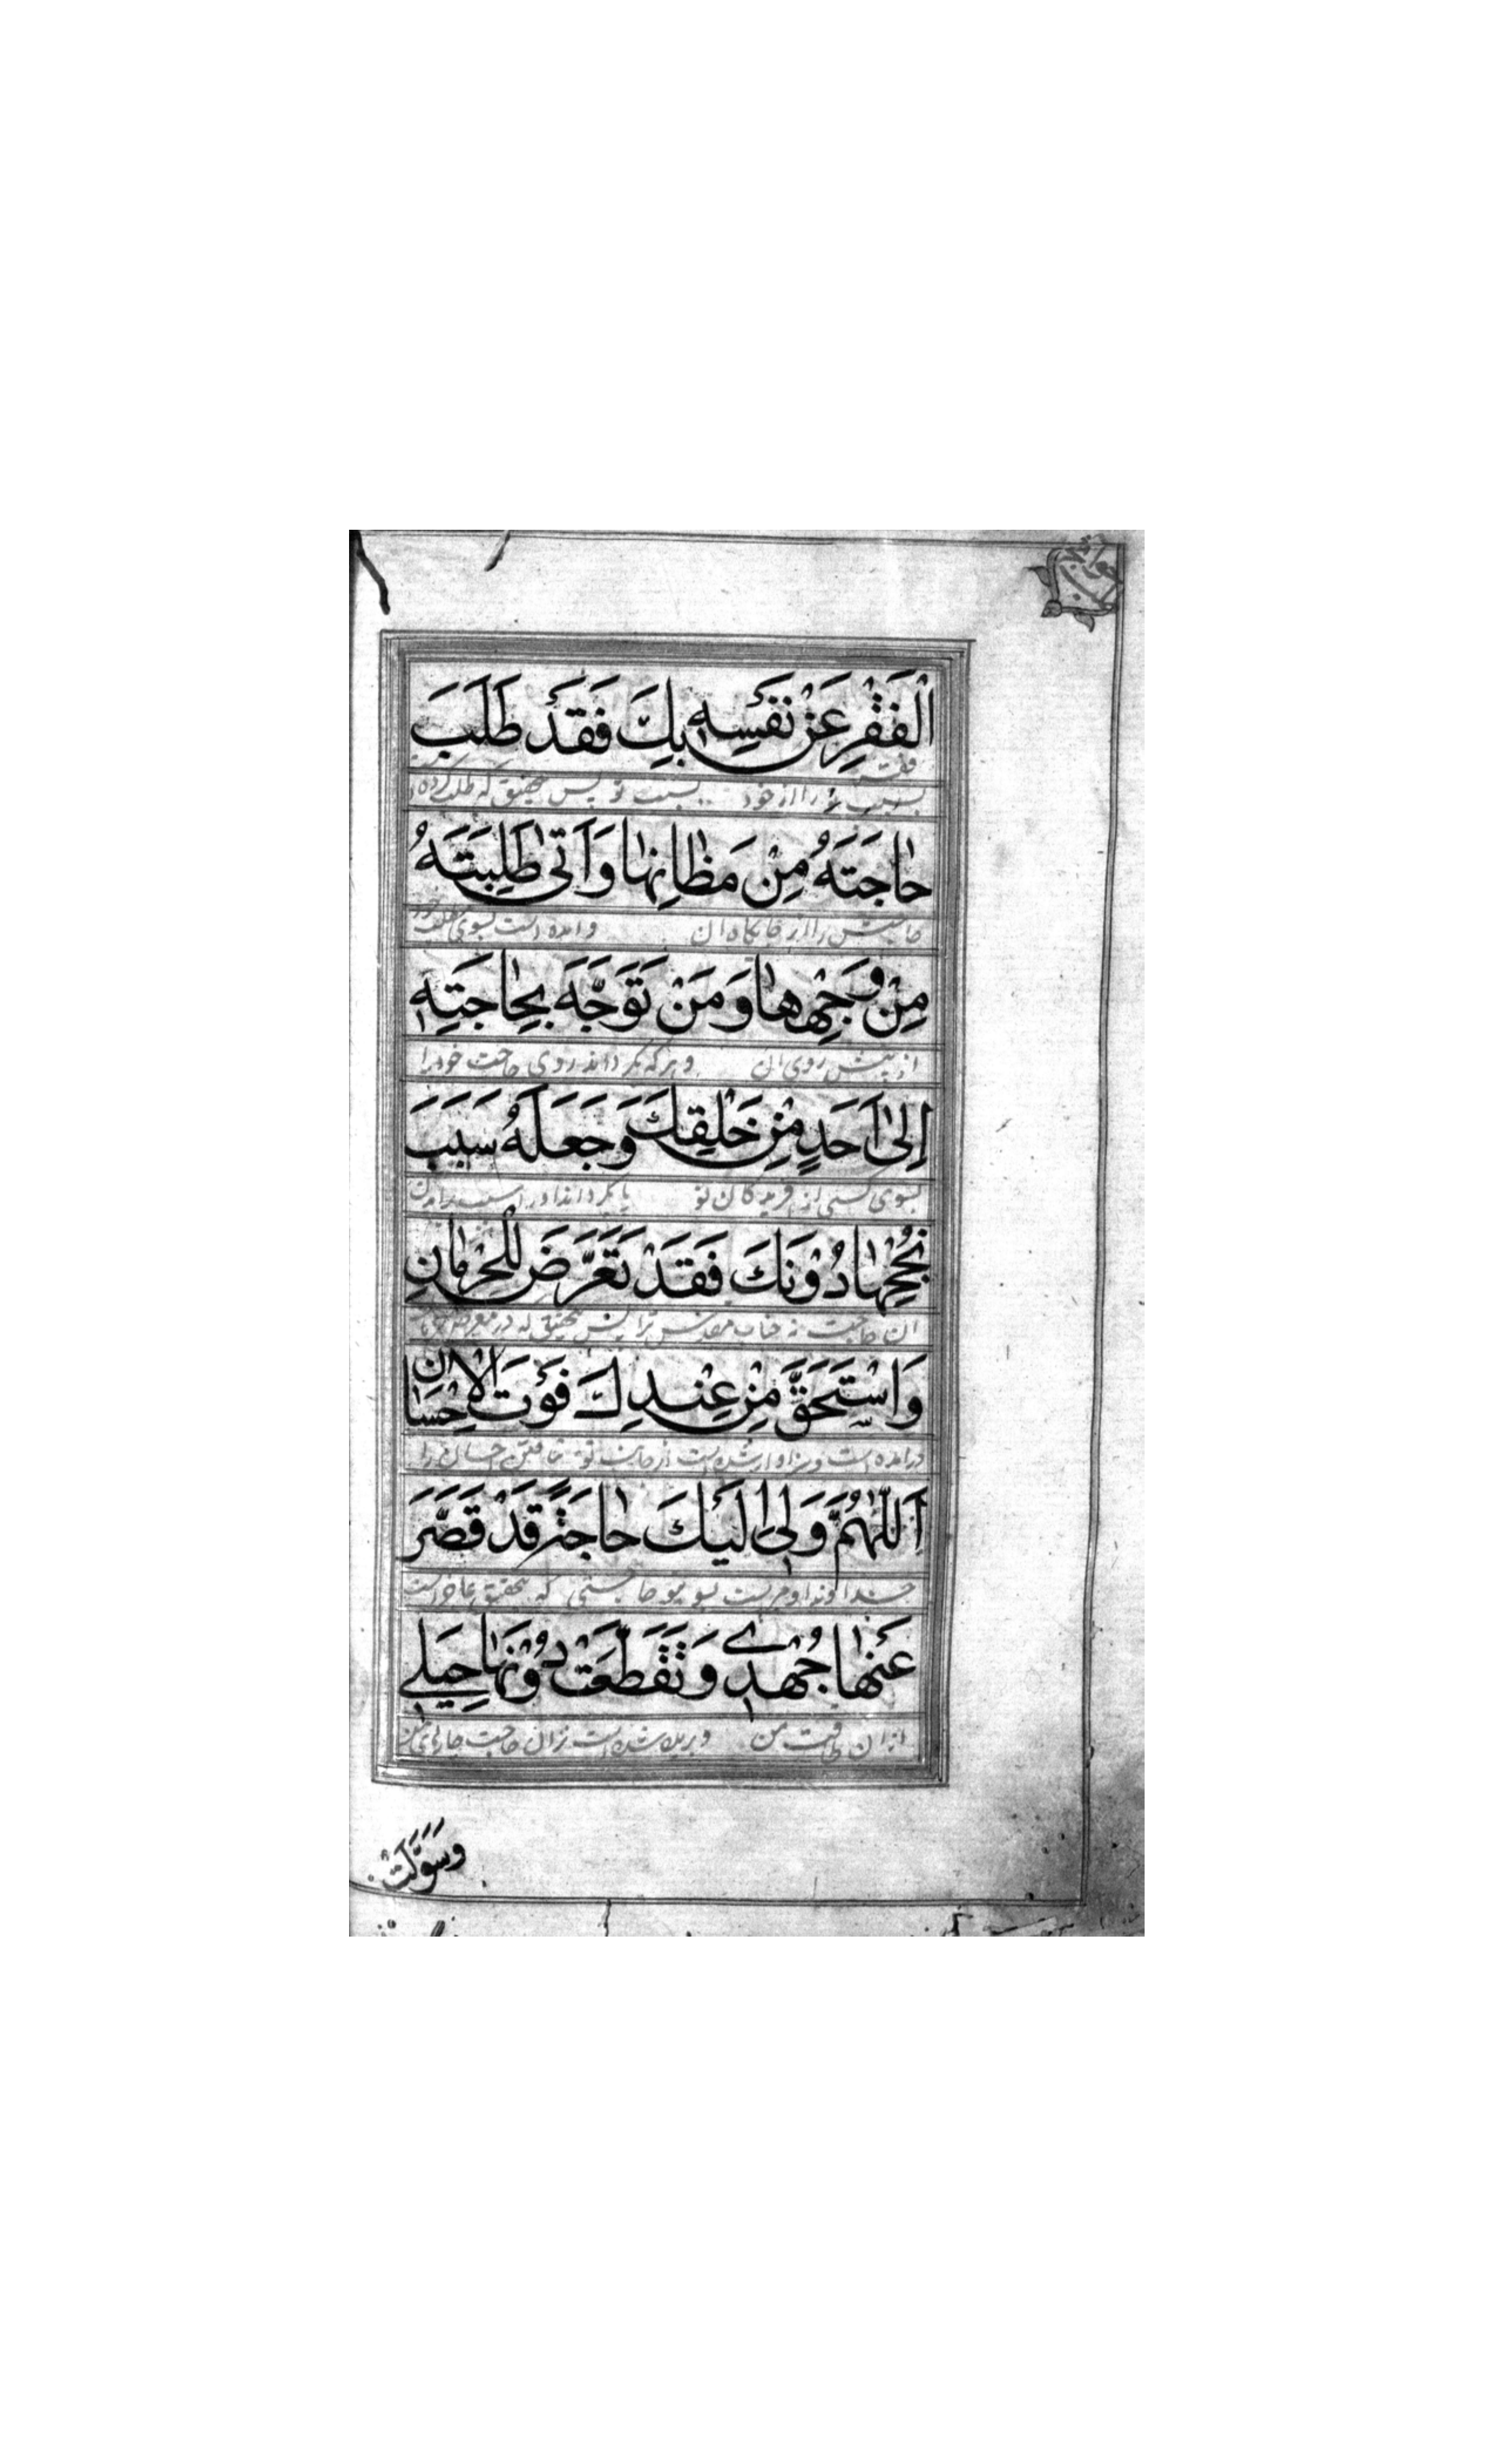 الْفَقْرِ عَنْ نَفْسِهِ بِكَ فَقَدْ طَلَبَ
را از خود بسبب تو پس بتحقیق که طلب کرده
حَاجَتَهُ مِنْ مَظَانِهَا وَاَتٰى طَلِبَتَهُ
حاجتش را از جایگاه ان وامده است بسوی مطلب خود
مِنْ وَجْهِهَا وَمَنْ تَوَجَّهَ بِحَاجَتِهِ
از پیش روی ان وهرکه بگرداند روی حاجت خود را
اِلىٰ اَحَدٍ مِنْ خَلْقِكَ وَجَعَلَهُ سَبَبَ
بسوی کسی از افریدگان تو یا بگرداند او را سبب
نُجْحِهَا دُوْنَكَ فَقَدْ تَعَرَّضَ لِلْحِرْمَانِ
ان حاجت نه جناب مقدس ترا پس بتحقیق که در معرض
وَاسْتَحَقَّ مِنْ عِنْدِكَ فَوْتَ الْاِحْسَانِ
درامده است وسزاوار شده است از جانب تو نایافتن احسان را
اَللّٰهُمَّ وَلِىْ اِلَيْكَ حَاجَةٌ قَدْ قَصَّرَ
خداوندا ومراست بسوی تو حاجتی که بتحقیق عاجز است
عَنْهَا جُهْدِيْ وَتَقَطَّعَتْ دُوْنَهَا حِيَلِيْ
از ان طاقت من وبریده شده است نزد ان حاجت چارهای من
وَسَوَّلَتْ